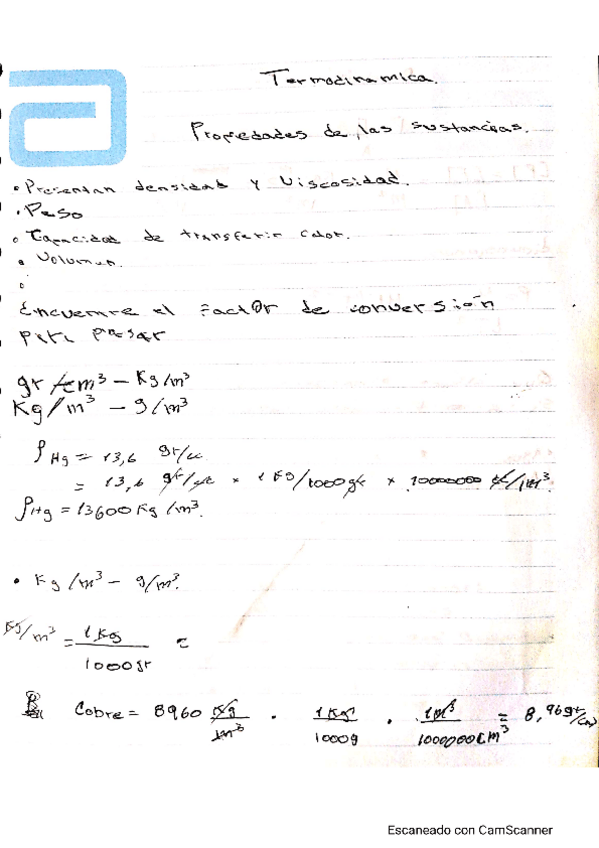 Termodinamica.
Propiedades de las sustancias.
• Presentan densidad y Viscosidad.
• Peso
• Capacidad de transferir calor.
• Volumen.
Encuentre el Factor de conversión
para pasar
gr/cm³ – Kg/m³
Kg/m³ – g/m³
ρHg = 13,6 gr/cc
= 13,6 gr/cc × 1 Kg/1000gr × 10000000 cc/1m³.
ρHg = 13600 Kg/m³.
• Kg/m³ – g/m³.
Kg/m³ = 1 Kg / 1000gr =
Cobre = 8960 Kg/m³ . 1Kgr/1000g . 1m³/1000000cm³ = 8,96gr/cm³
Escaneado con CamScanner